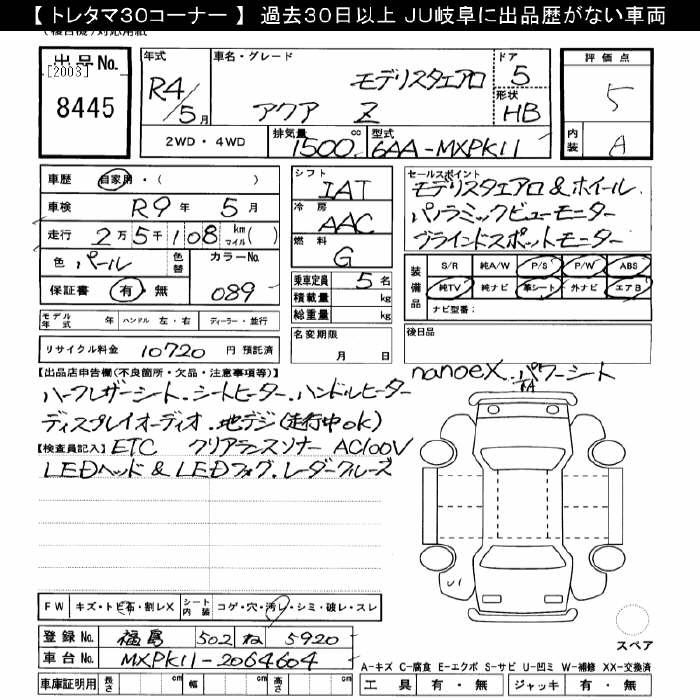 【 トレタマ30コーナー 】 過去30日以上 JU岐阜に出品歴がない車両
出品No.
[2003]
8445
年式
R4/5月
車名・グレード
モデリスタエアロ
アクア Z
ドア
5
形状
HB
2WD・4WD
排気量 1500 cc
型式 6AA-MXPK11
評価点
5
内装
A
車歴 自家用・( )
車検 R9年 5月
走行 2万5千108 km マイル( )
色 パール 色替
カラーNo.
089
保証書 有・無
モデル年式 年 ハンドル 左・右 ディーラー・並行
リサイクル料金 10720 円 預託済
シフト
IAT
冷房
AAC
燃料
G
乗車定員 5 名
積載量 kg
総重量 kg
名変期限
月 日
セールスポイント
モデリスタエアロ&ホイール
パノラミックビューモニター
ブラインドスポットモニター
装備品
S/R 純A/W P/S P/W ABS
純TV 純ナビ 革シート 外ナビ エアB
ナビ型番:
後日品
【出品店申告欄(不良箇所・欠品・注意事項等)】
nanoeX.パワーシート
ハーフレザーシート.シートヒーター.ハンドルヒーター
ディスプレイオーディオ.地デジ(走行中ok)
【検査員記入】ETC クリアランスソナー AC100V
LEDヘッド&LEDフォグ.レーダークルーズ
U1
FW キズ・トビ石・割レX シート内装 コゲ・穴・汚レ・シミ・破レ・スレ
登録No. 福島 502 ね 5920
車台No. MXPK11-2064604
スペア
A-キズ C-腐食 E-エクボ S-サビ U-凹ミ W-補修 XX-交換済
車庫証明用 長さ cm 幅 cm 高さ cm
工具 有・無 ジャッキ 有・無